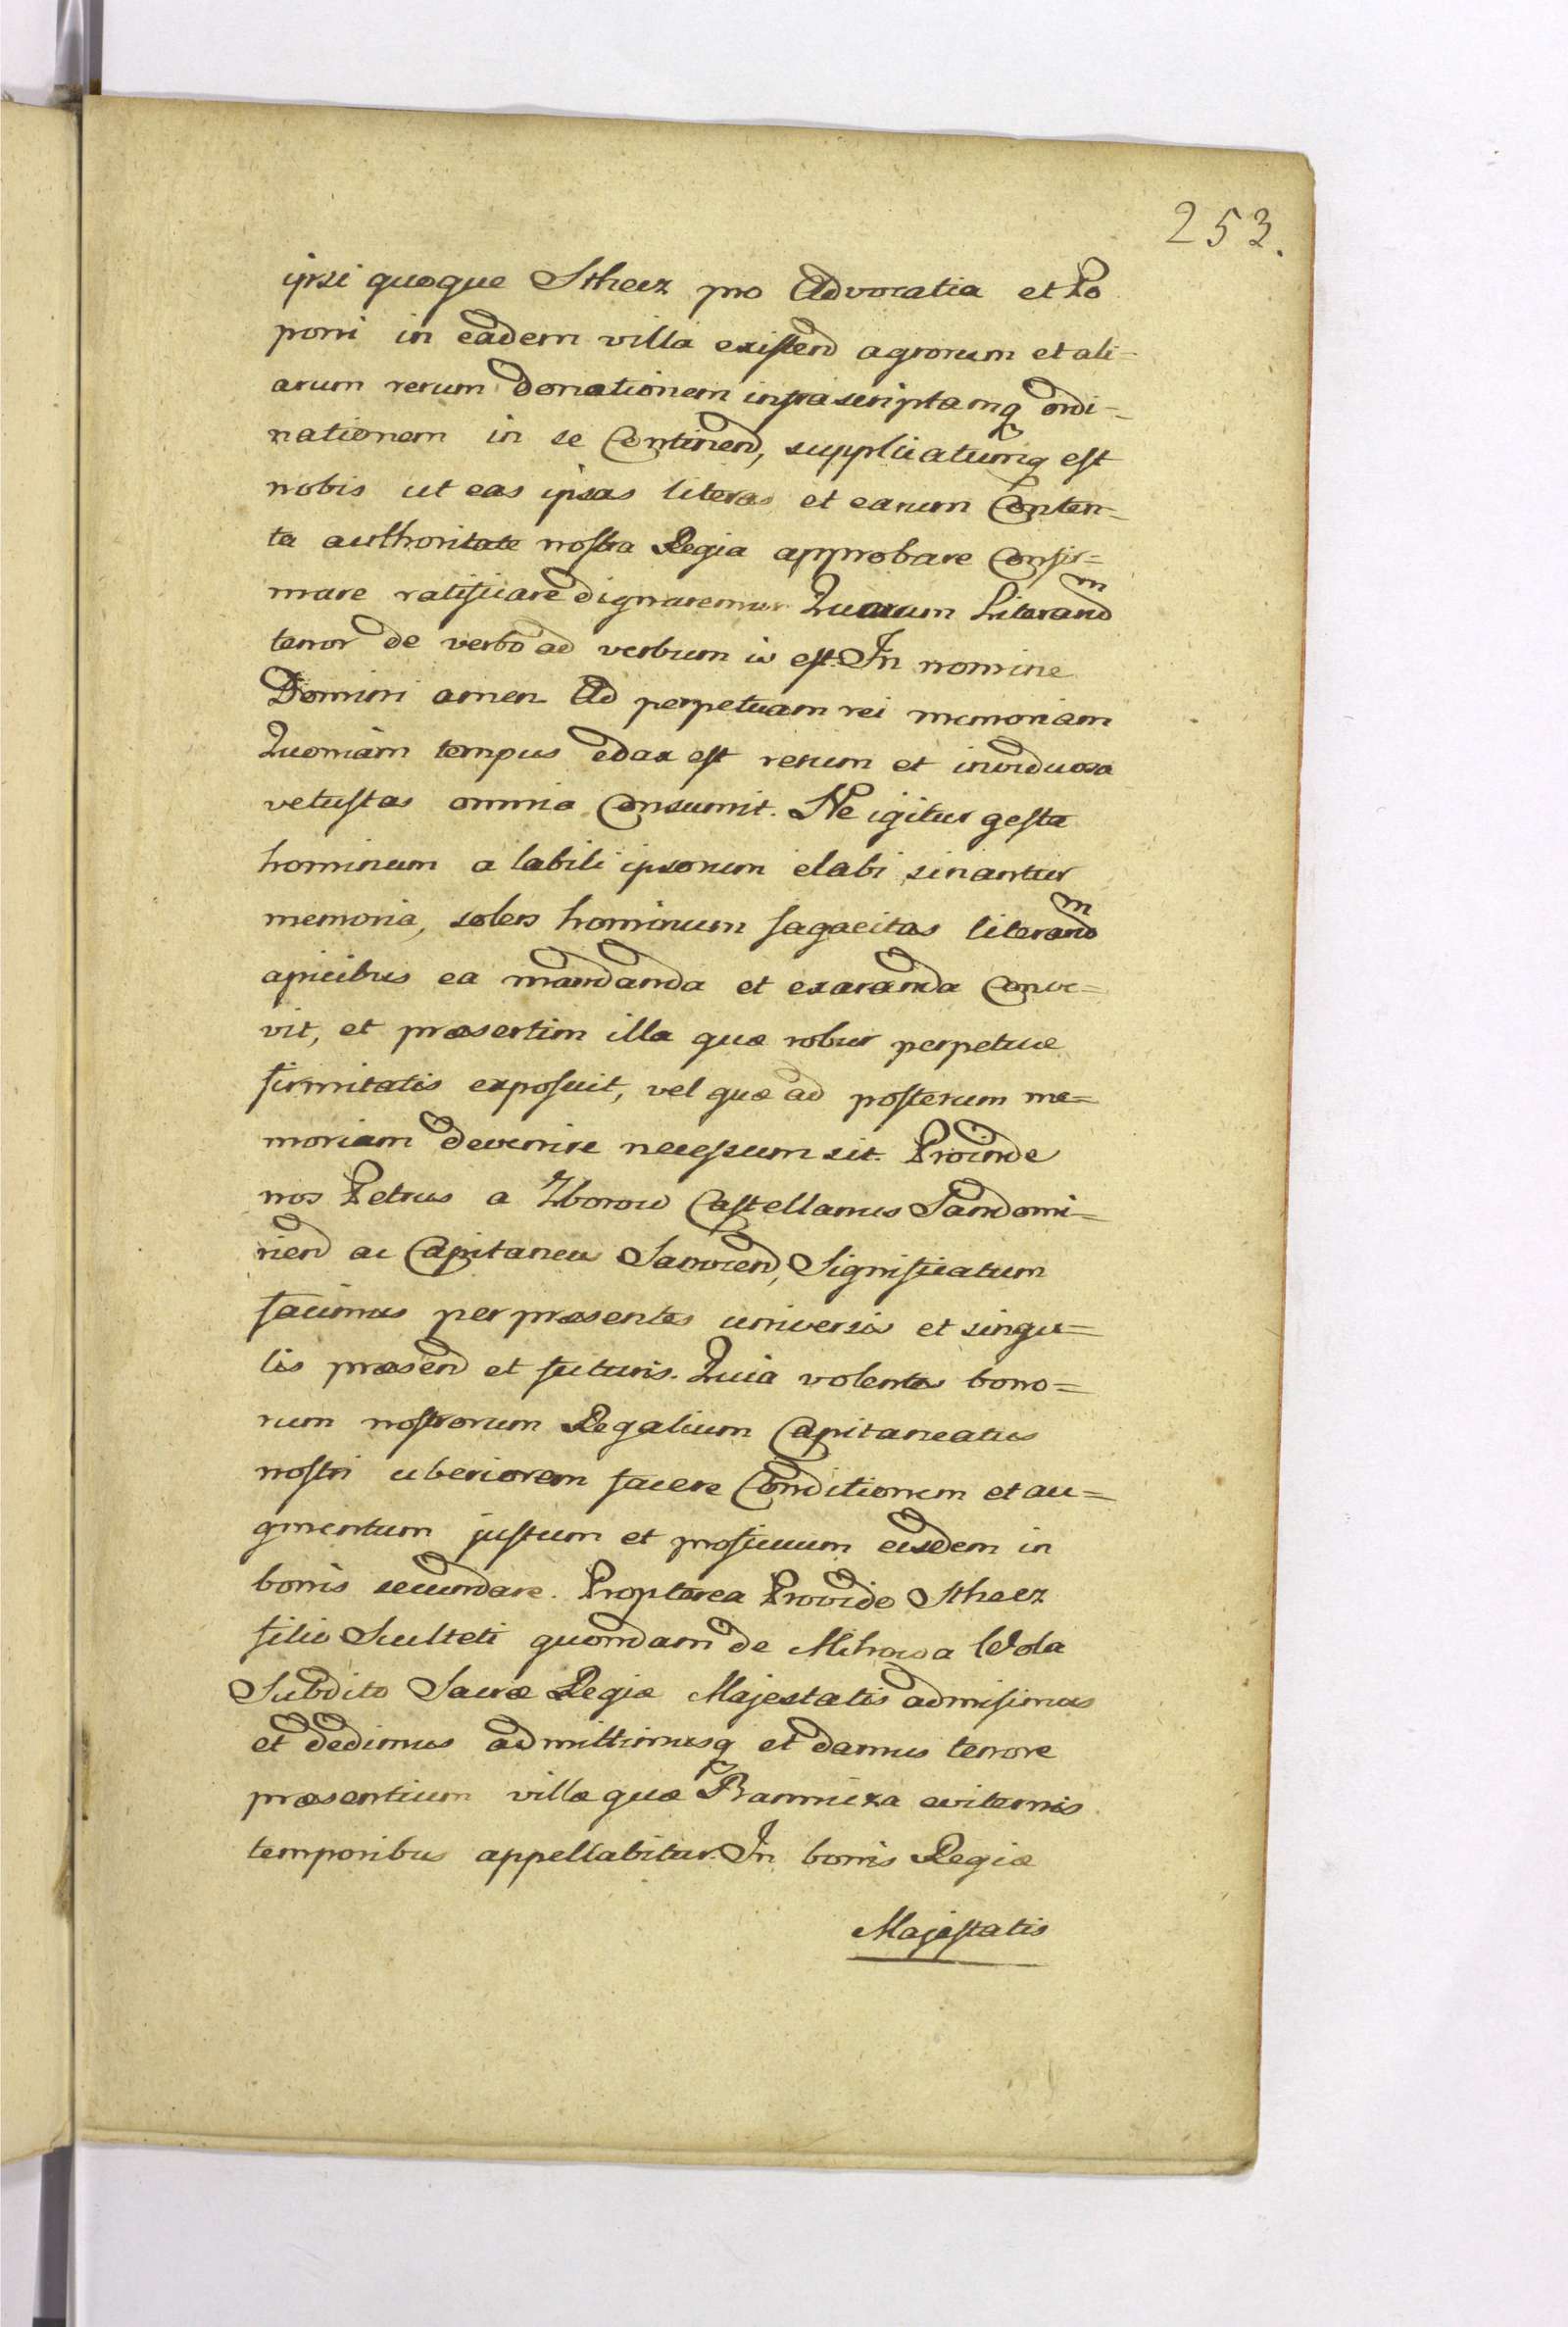 253.
ipsi quoque Sthecz pro Advocatia et Po
poni in eadem villa existend agrorum et ali=
arum rerum donationem infrascriptamq ordi=
nationem in se Continend, supplicatumq est
nobis ut eas ipsas literas et earum Conten=
ta authoritate nostra Regia approbare Confir=
mare ratificare dignaremur Quarum Literarum
tenor de verbo ad verbum is est. In nomine
Domini amen Ad perpetuam rei memoriam
Quoniam tempus edax est rerum et inviduosa
vetustas omnia Consumit. Ne igitur gesta
hominum a labili ipsorum elabi sinantur
memoria, solers hominum sagacitas literarum
apicibus ea mandanda et exaranda Conve=
vit, et præsertim illa quæ robur perpetuæ
firmitatis exposuit, vel quæ ad posterum me=
moriam devenire necessum sit. Proinde
nos Petrus a Zborow Castellanus Sandomi=
riend ac Capitaneus Sanocend, Significatum
facimus per præsentes universis et singu=
lis præsend et futuris. Quia volentes bono=
rum nostrorum Regalium Capitaneatus
nostri uberiorem facere Conditionem et au=
gmentum justum et proficuum eisdem in
bonis secundare. Propterea Provido Sthecz
filio Sculteti quondam de Mihowa Wola
Subdito Sacræ Regiæ Majestatis admisimus
et dedimus admittimusq et damus tenore
præsentium villæ quæ Bannicza æviternis
temporibus appellabitur. In bonis Regiæ
Majestatis